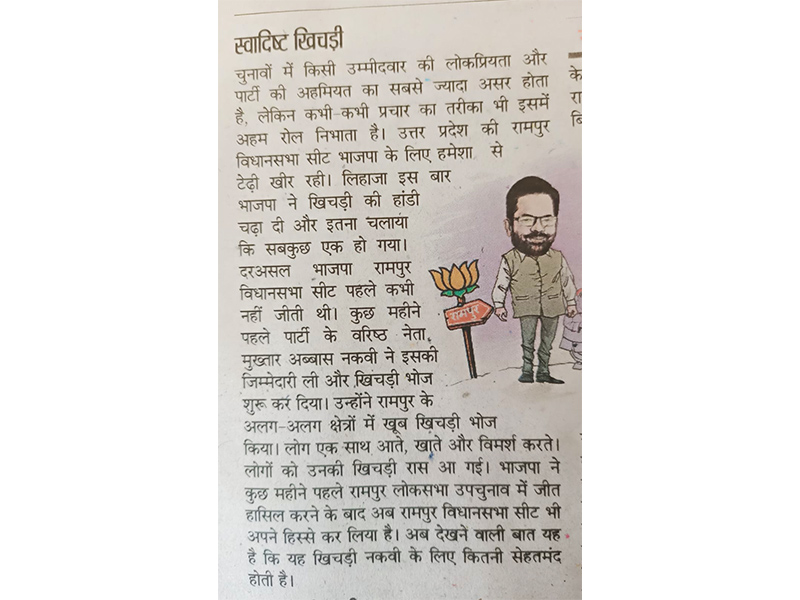 स्वादिष्ट खिचड़ी
चुनावों में किसी उम्मीदवार की लोकप्रियता और
पार्टी की अहमियत का सबसे ज्यादा असर होता
है, लेकिन कभी-कभी प्रचार का तरीका भी इसमें
अहम रोल निभाता है। उत्तर प्रदेश की रामपुर
विधानसभा सीट भाजपा के लिए हमेशा से
टेढ़ी खीर रही। लिहाजा इस बार
भाजपा ने खिचड़ी की हांडी
चढ़ा दी और इतना चलाया
कि सबकुछ एक हो गया।
दरअसल भाजपा रामपुर
विधानसभा सीट पहले कभी
नहीं जीती थी। कुछ महीने
पहले पार्टी के वरिष्ठ नेता
मुख्तार अब्बास नकवी ने इसकी
जिम्मेदारी ली और खिचड़ी भोज
शुरू कर दिया। उन्होंने रामपुर के
अलग-अलग क्षेत्रों में खूब खिचड़ी भोज
किया। लोग एक साथ आते, खाते और विमर्श करते।
लोगों को उनकी खिचड़ी रास आ गई। भाजपा ने
कुछ महीने पहले रामपुर लोकसभा उपचुनाव में जीत
हासिल करने के बाद अब रामपुर विधानसभा सीट भी
अपने हिस्से कर लिया है। अब देखने वाली बात यह
है कि यह खिचड़ी नकवी के लिए कितनी सेहतमंद
होती है।
रामपुर
के
रा